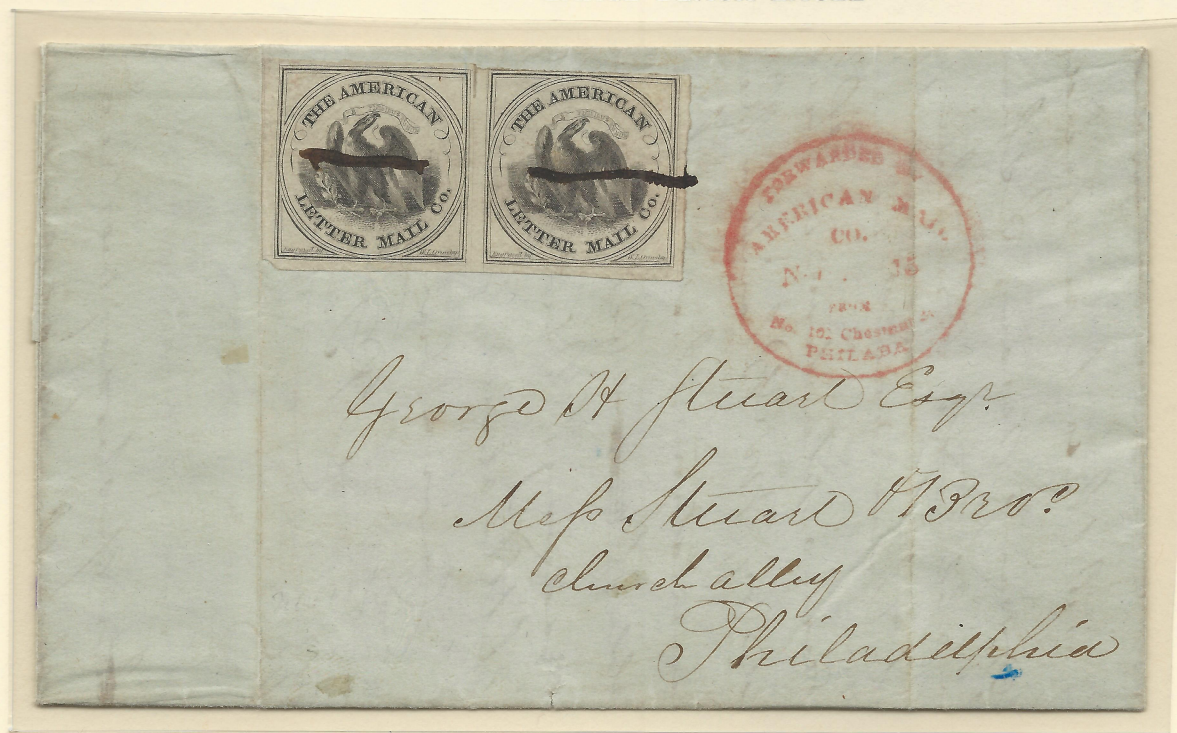 THE AMERICAN
LETTER MAIL Co.
THE AMERICAN
LETTER MAIL Co.
FORWARDED BY
AMERICAN MAIL
CO.
15
FROM
No. 101 Chestnut St
PHILADA
George H Stuart Esqr
Mess Stuart & Bros
church alley
Philadelphia